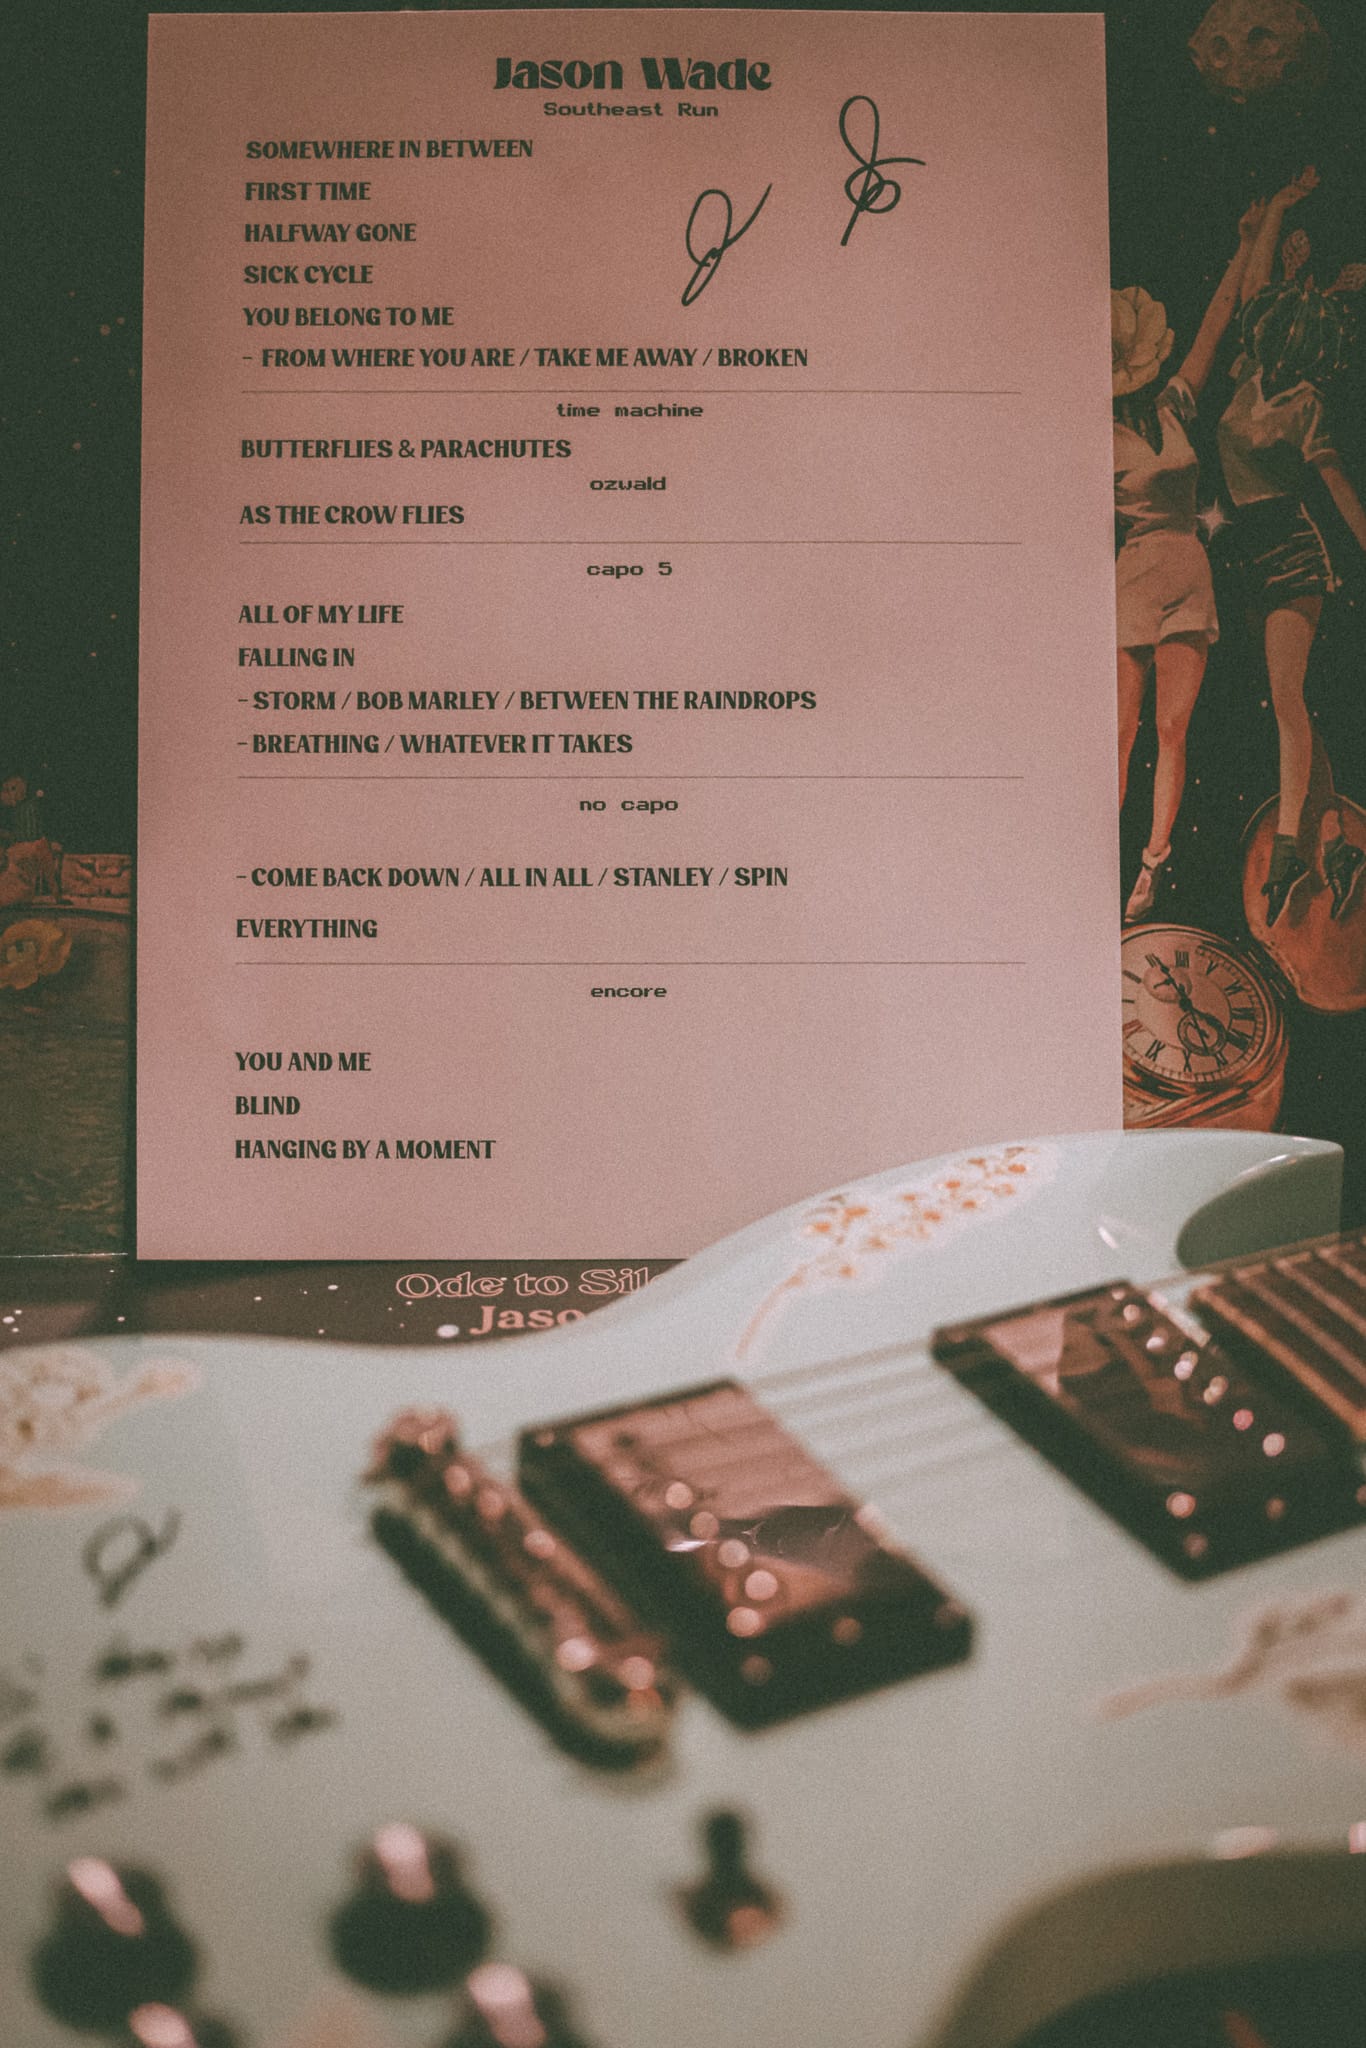 Jason Wade
Southeast Run
SOMEWHERE IN BETWEEN
FIRST TIME
HALFWAY GONE
SICK CYCLE
YOU BELONG TO ME
- FROM WHERE YOU ARE / TAKE ME AWAY / BROKEN
time machine
BUTTERFLIES & PARACHUTES
ozwald
AS THE CROW FLIES
capo 5
ALL OF MY LIFE
FALLING IN
- STORM / BOB MARLEY / BETWEEN THE RAINDROPS
- BREATHING / WHATEVER IT TAKES
no capo
- COME BACK DOWN / ALL IN ALL / STANLEY / SPIN
EVERYTHING
encore
YOU AND ME
BLIND
HANGING BY A MOMENT
Ode to